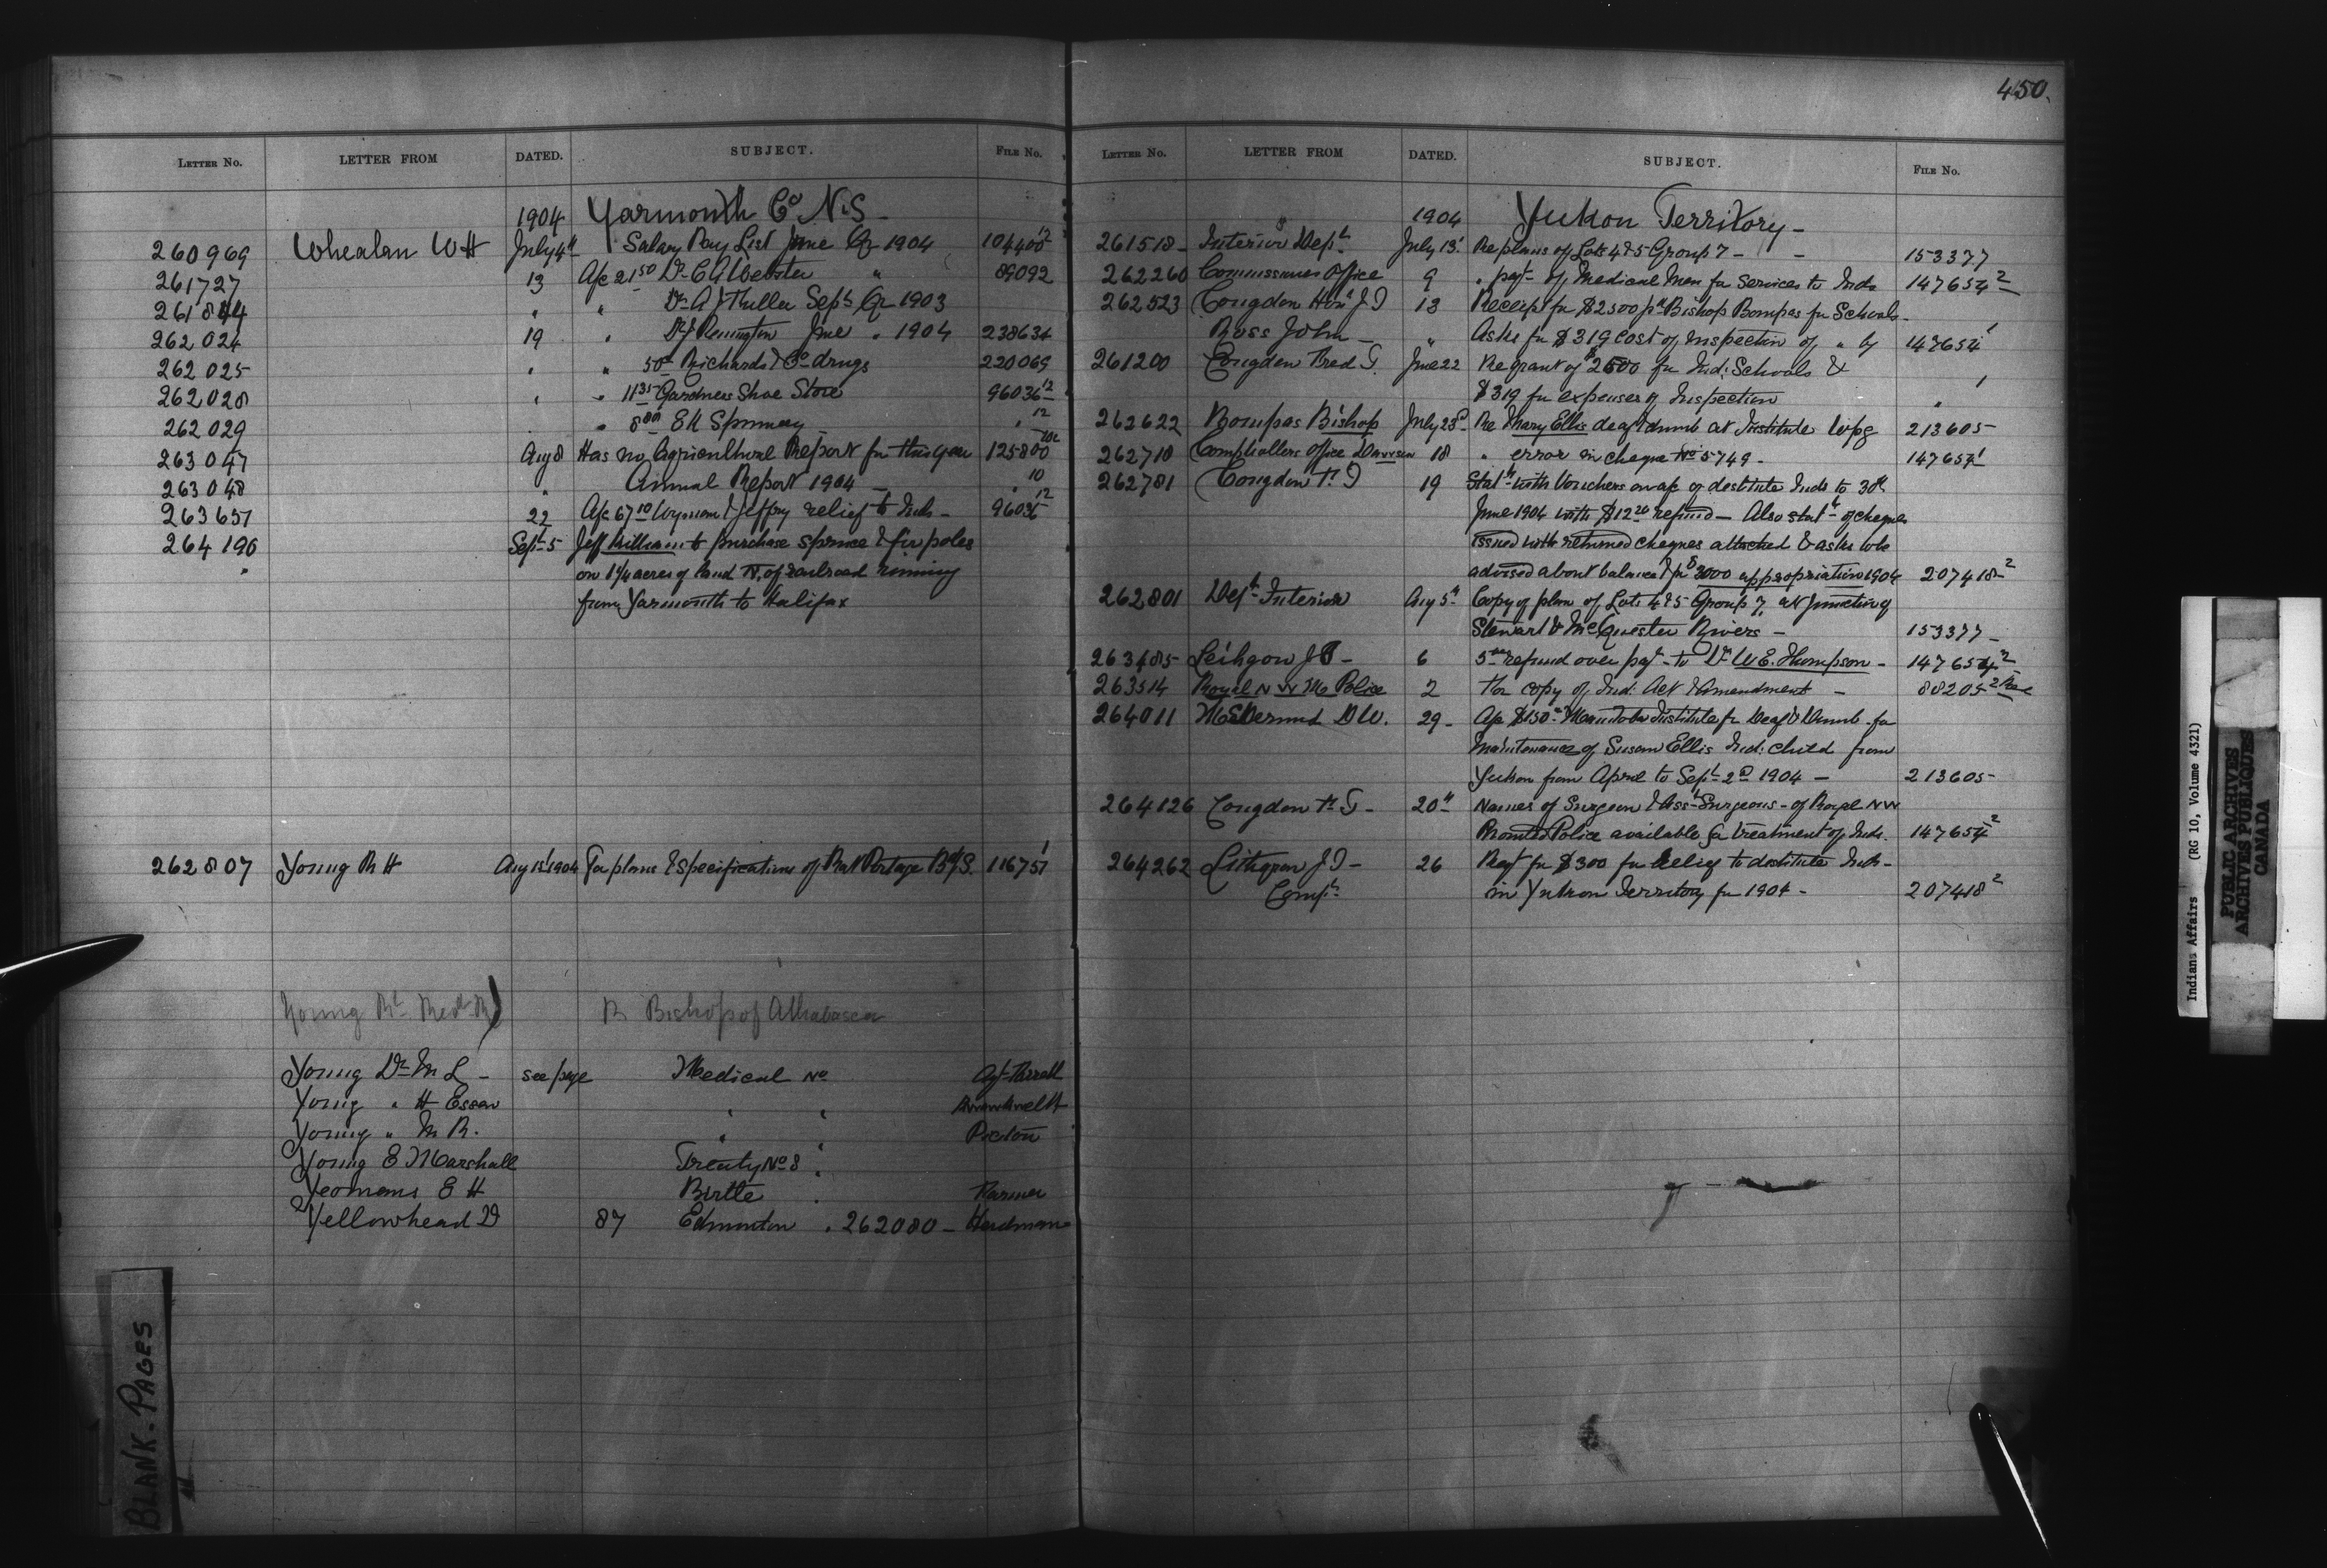 450.
LETTER NO. LETTER FROM DATED. SUBJECT. FILE NO.
1904 Yarmouth Co N.S
260969 Whealan W H July 4th Salary Pay List June Qr 1904 104400 12
261727 13 A/c 21.50 Dr C A Webster " 89092
261844 " " Dr A J Fuller Sept Qr 1903
262024 19 " June " 1904 238634
262025 " " 50 Richards & Co drugs 220069
262028 " " 11 35 Gardners Shoe Store 96036 12
262029 " 8 80 E K Spinney " 12
263047 Aug 8 Has no Agricultural Report for this year 125800
263048 " Annual Report 1904 — " 10
263651 22 A/c 67 10 Wyman & Jeffry relief to Inds - 96036 12
264190 Sept 5 Jeff William to purchase spruce & fir poles
on 1¼ acres of land N. of railroad running
from Yarmouth to Halifax
262807 Young R H Aug 15 1904 For plans & specifications of Rat Portage B/S. 116751 1
Young Rt Revd R) R Bishop of Athabasca
Young Dr M L - see page Medical No Agt
Young " H Essau " "
Young " M R. " " Pictou
Young E Marshall Treaty No 8 "
Yeomans E H Birtle " Farmer
Yellowhead D 87 Edmonton " 262080 - Herdman
LETTER NO. LETTER FROM DATED. SUBJECT. FILE NO.
1904 Yukon Territory -
261518 - Interior Dept July 13 Re plans of Lots 4 & 5 Group 7 - - 153377
262260 Commissioners Office 9 " payt of Medical Men for Services to Inds 147654 2
262523 Congdon Hon J 13 Receipt for $2500 pd Bishop Bompas for Schools -
Ross John - " Asks for $319 cost of Inspection of " by 147654 1
261200 Congdon Fred T. June 22 Re grant of $2500 for Ind: Schools &
$319 for expenses of Inspection " 1
262622 Bompas Bishop July 23d Re Mary Ellis deaf & dumb at Institute Wpg 213605 -
262710 Comptrollers Office Dawson 18 " error in cheque No 5749 - 147654 1
262781 Congdon F. T 19 Statt with Vouchers on a/c of destitute Inds to 30th
June 1904 with $12 26 refund - Also statt of cheques
issued with returned cheques attached & asks to be
advised about balance & for $3000 appropriation 1904 207418 2
262801 Dept Interior Aug 5th Copy of plan of Lots 4 & 5 Group 7, at junction of
Stewart & McQuesten Rivers - 153377 -
263485 Leihgow J T - 6 5 00 refund over payt to Dr W E. Thompson - 147654 2
263514 Royal N W M Police 2 For copy of Ind: Act & Amendment - 88205 2
264011 McDermid D W. 29 - A/c $150 Manitoba Institute for Deaf & Dumb - for
Maintenance of Susan Ellis Ind: child from
Yukon from April to Sept 2d 1904 - 213605 -
264126 Congdon F T - 20th Names of Surgeon & Asst Surgeons - of Royal NW
Mounted Police available for treatment of Inds. 147654 2
264262 Lithgow J T - 26 Reqt for $300 for relief to destitute Inds -
Compt. in Yukon Territory for 1904 - 207418 2
BLANK - PAGES
Indian Affairs (RG 10, Volume 4321)
PUBLIC ARCHIVES
ARCHIVES PUBLIQUES
CANADA